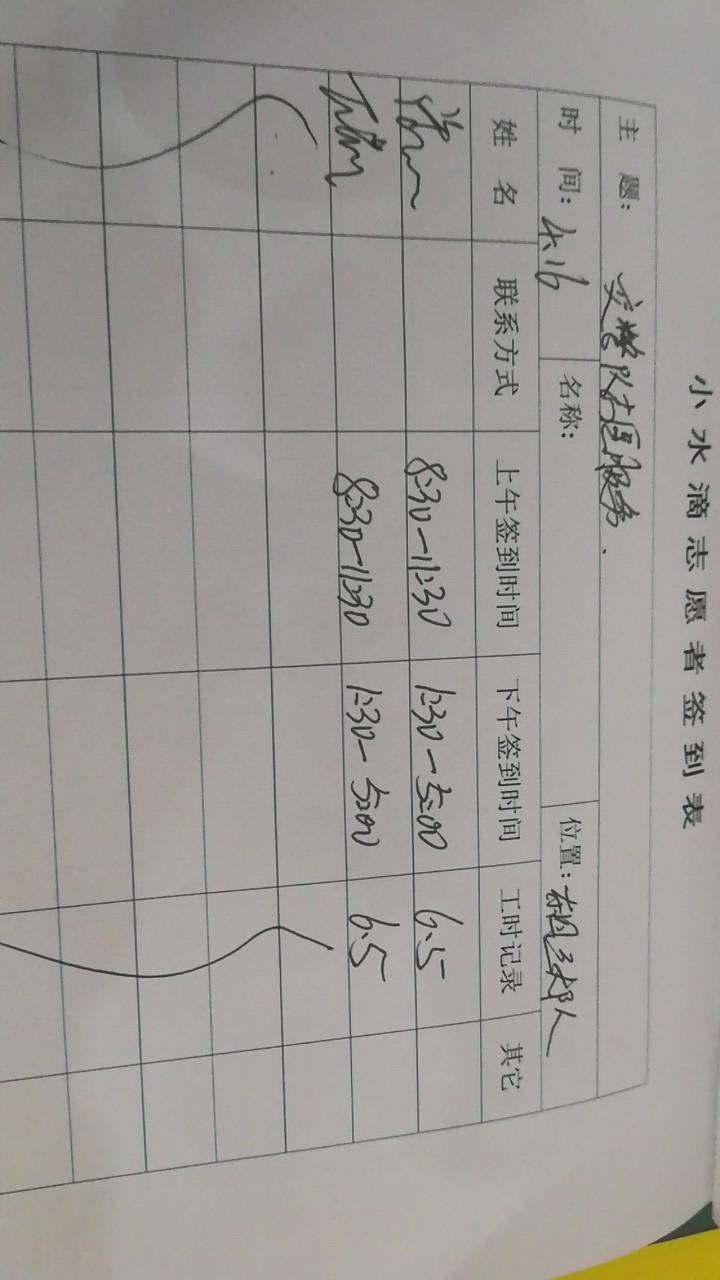 小水滴志愿者签到表
主 题: 交警队志愿服务.
时 间: 4.16 名称: 位置:
姓 名 联系方式 上午签到时间 下午签到时间 工时记录 其它
8:30-11:30 1:30-5:00 6.5
8:30-11:30 1:30-5:00 6.5